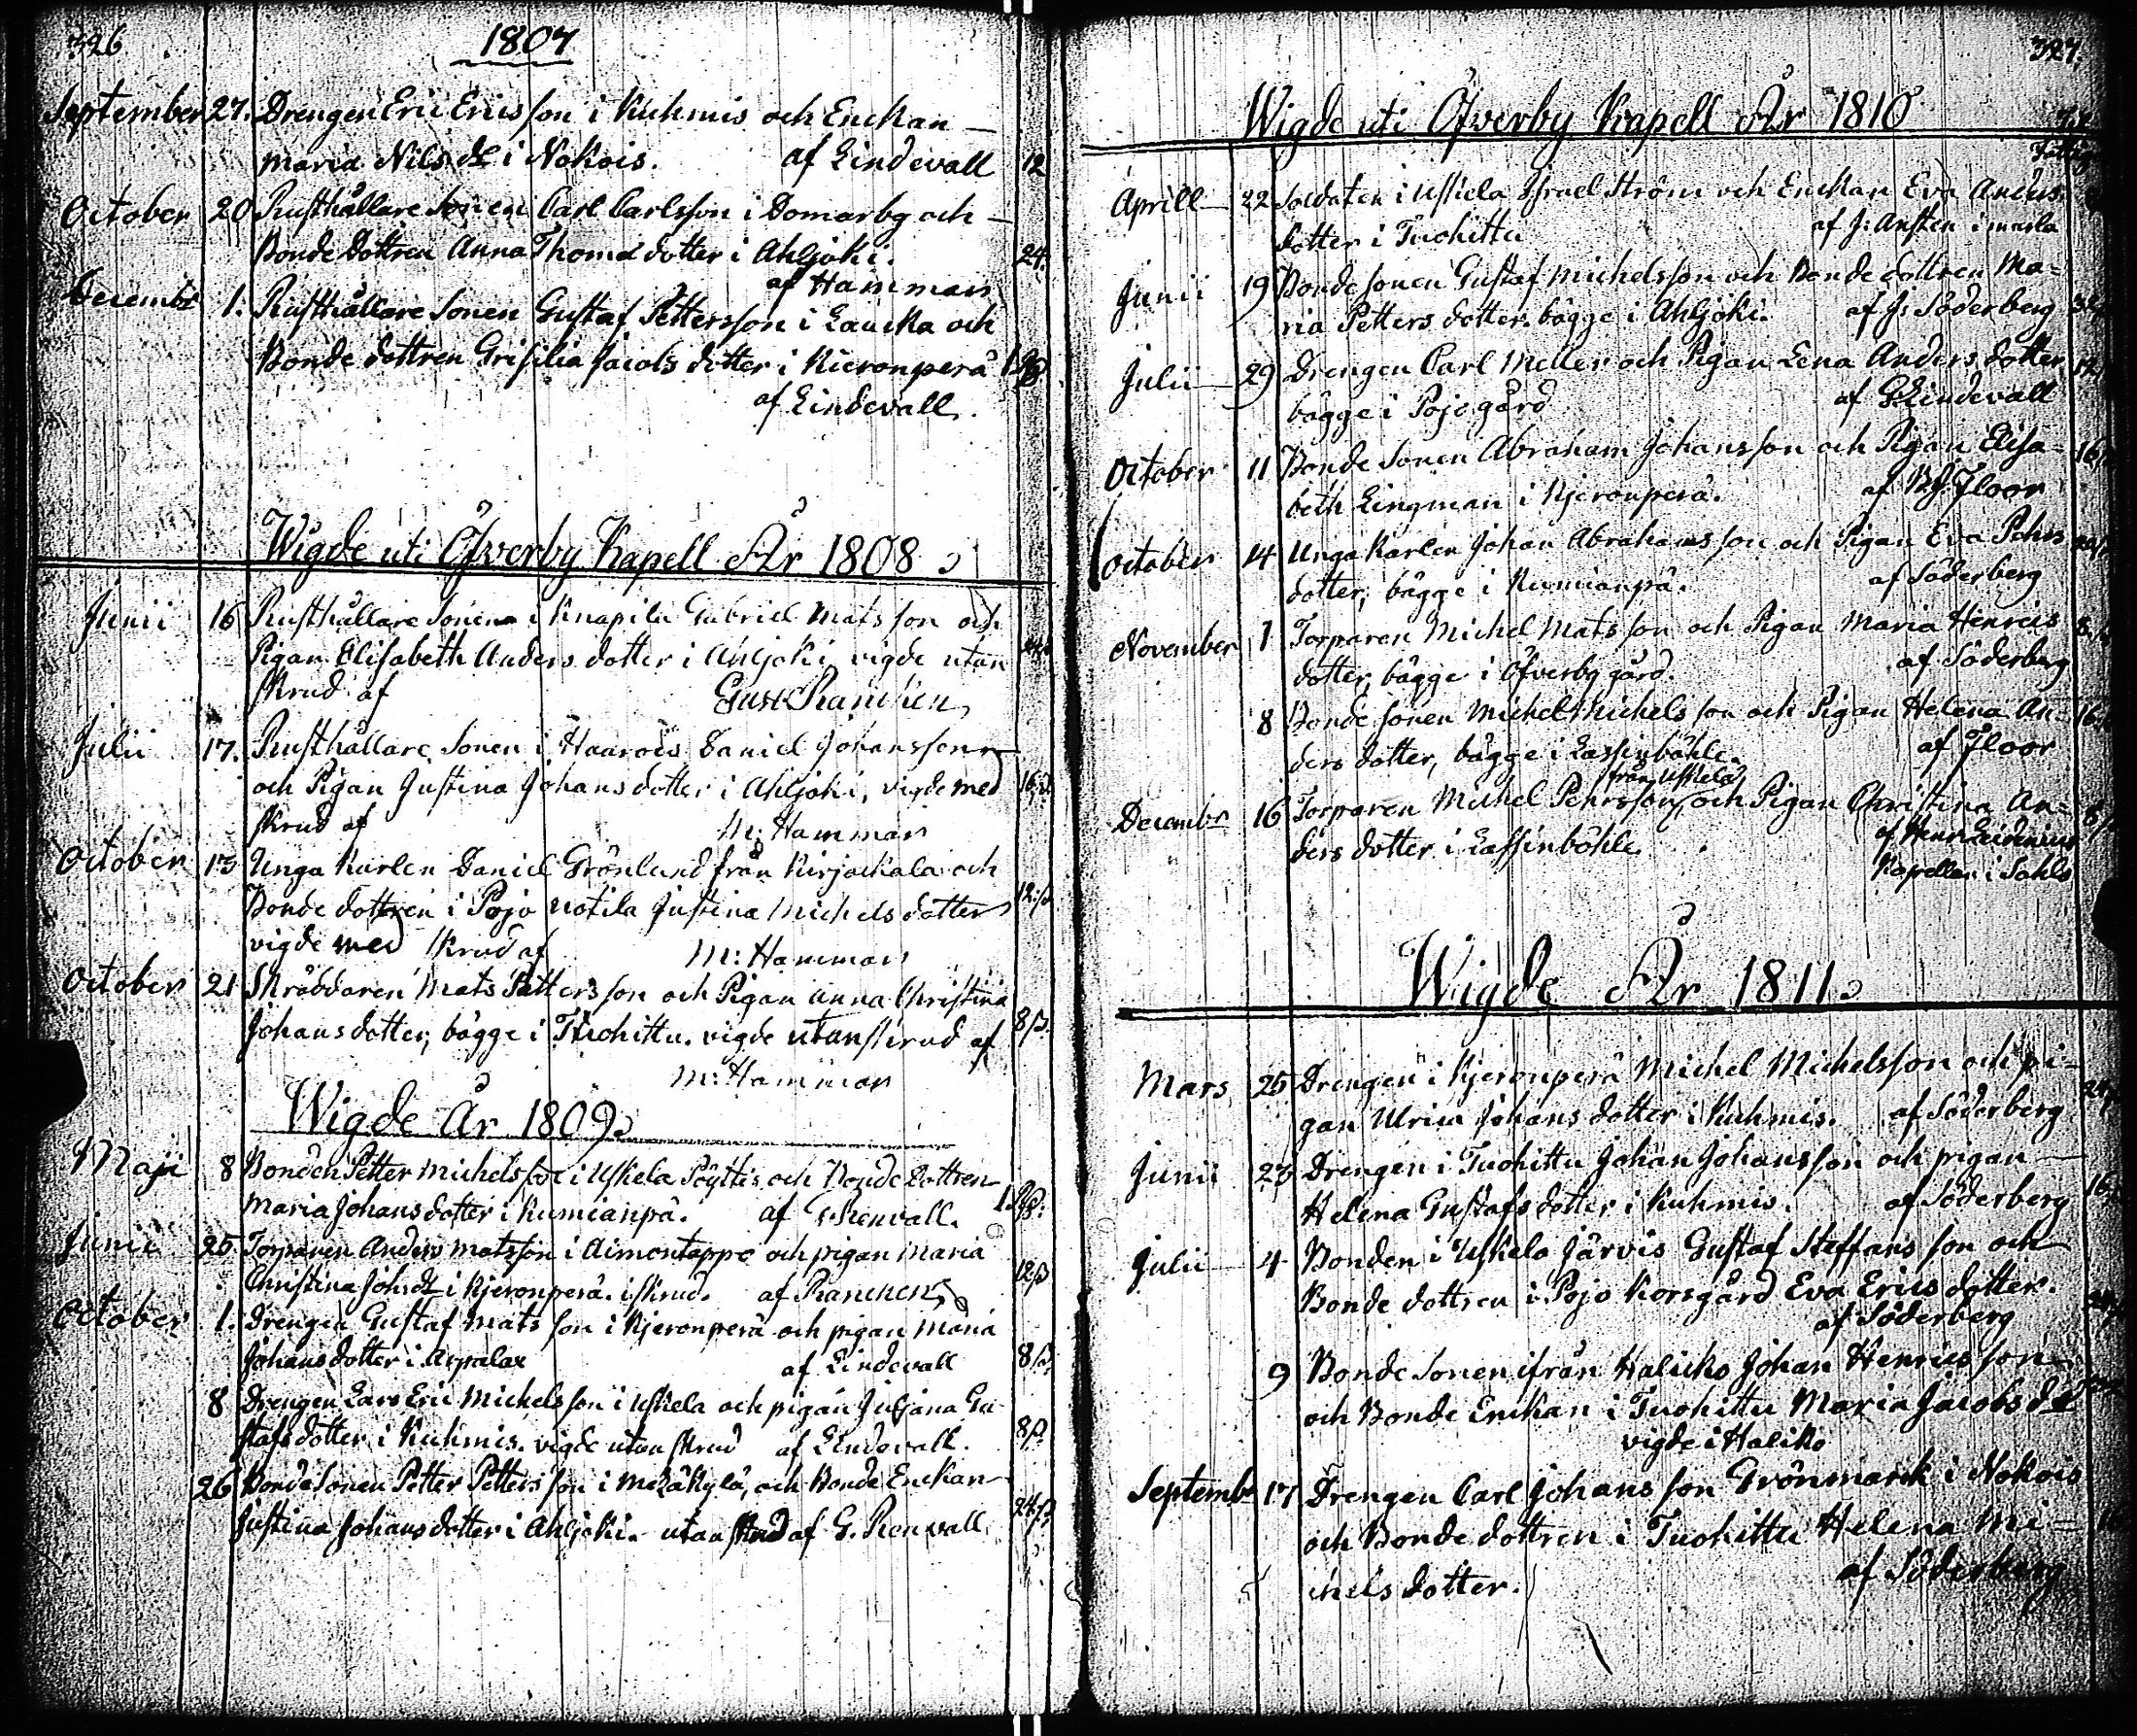 326
1807
September 27. Drengen Eric Ericsson i Kuhmis och Enckan
Maria Nils dr i Nokois. af Lindevall 12
October 20 Rusthållare Sonen Carl Carlsson i Domarby och
Bonde dottren Anna Thomæ dotter i Ahljoki. 24.
af Hammar
Decembr 1. Rusthållare Sonen Gustaf Pettersson i Laucka och
Bonde dottren Grisilia Jacobs dotter i Kieronperä
af Lindevall.
Wigde uti Öfverby Kapell År 1808
Junii 16 Rusthållare Sonen i Knapila Gabriel Mats son och
Pigan Elisabeth Anders dotter i Ahljoki, vigde utan
skrud af
Julii 17. Rusthållare Sonen i Haarois Daniel Johansson
och Pigan Justina Johans dotter i Ahljoki, vigde med 16
skrud af M: Hammar
October 13 Unga Karlen Daniel Grönlund från Kirjackala och
Bonde dottren i Pojo Notila Justina Michels dotter 12 ß
vigde med skrud af M: Hammar
October 21 Skräddaren Mats Petters son och Pigan Anna Christina
Johans dotter, bägge i Tuohittu. vigde utan skrud af 8 ß.
M: Hammar
Wigde År 1809
Maji 8 Bonden Petter Michelsson i Uskela Pöyttis och Bonde dottren
Maria Johans dotter i Kumianpä. af Renvall.
Junii 25 Torparen Anders Matsson i Aimontappo och pigan Maria
Christina Joh:dr i Kjeronperä. i skrud. af Rancken 12 ß
October 1. Drengen Gustaf Mats son i Kjeronperä och pigan Maria
Johans dotter i Arpalax af Lindevall 8 ß
8 Drengen Lars Eric Michels son i Uskela och pigan Juliana Gu-
stafs dotter i Kuhmis. vigde utan skrud af Lindevall. 8 ß.
26 Bonde Sonen Petter Petters son i Mekäkylä, och Bonde Enckan
Justina Johans dotter i Ahljoki. utan skrud af G. Renvall 24 ß
327.
Wigde uti Öfverby Kapell År 1810
Aprill 22 Soldaten i Uskela Israel Ström och Enckan Eva Anders
dotter i Tuohittu af J:
Junii 19 Bonde sonen Gustaf Michelsson och Bonde dottren Ma=
ria Petters dotter. bägge i Ahljoki. af J: Söderberg
Julii 29 Drengen Carl Meller och Pigan Lena Anders dotter, 12
bägge i Pojo gård af G Lindevall
October 11 Bonde Sonen Abraham Johansson och Pigan Elisa= 16
beth Lingman i Kjeronperä. af Floor
October 14 Unga Karlen Johan Abrahams son och Pigan Eva Pehrs
dotter, bägge i Kumianpä. af Söderberg
November 1 Torparen Michel Mats son och Pigan Maria Henrics 8
dotter, bägge i Öfverby gård. af Söderberg
8 Bonde sonen Michel Michels son och Pigan Helena An= 16
ders dotter, bägge i Lassinböhle. af Floor
från Uskela
Decembr 16 Torparen Michel Pehrsson, och Pigan Christina An= 8
ders dotter i Lassinböhle. af Henr: Leidenius
Kapellan i Sahlo
Wigde År 1811
Mars 25 Drengen i Kjeronperä Michel Michelsson och pi=
gan Ulrica Johans dotter i Kuhmis. af Söderberg 24
Junii 23 Drengen i Tuohittu Johan Johansson och pigan
Helena Gustafs dotter i Kuhmis. af Söderberg 16
Julii 4 Bonden i Uskela Järvis Gustaf Staffans son och
Bonde dottren i Pojo Korsgård Eva Erics dotter.
af Söderberg
9 Bonde Sonen ifrån Halicko Johan Henrics son
och Bonde Enckan i Tuohittu Maria Jacobs dr
vigde i Haliko
Septembr 17 Drengen Carl Johans son Grönmarck i Nokois
och Bonde dottren i Tuohittu Helena Mi= 16
chels dotter. af Söderberg